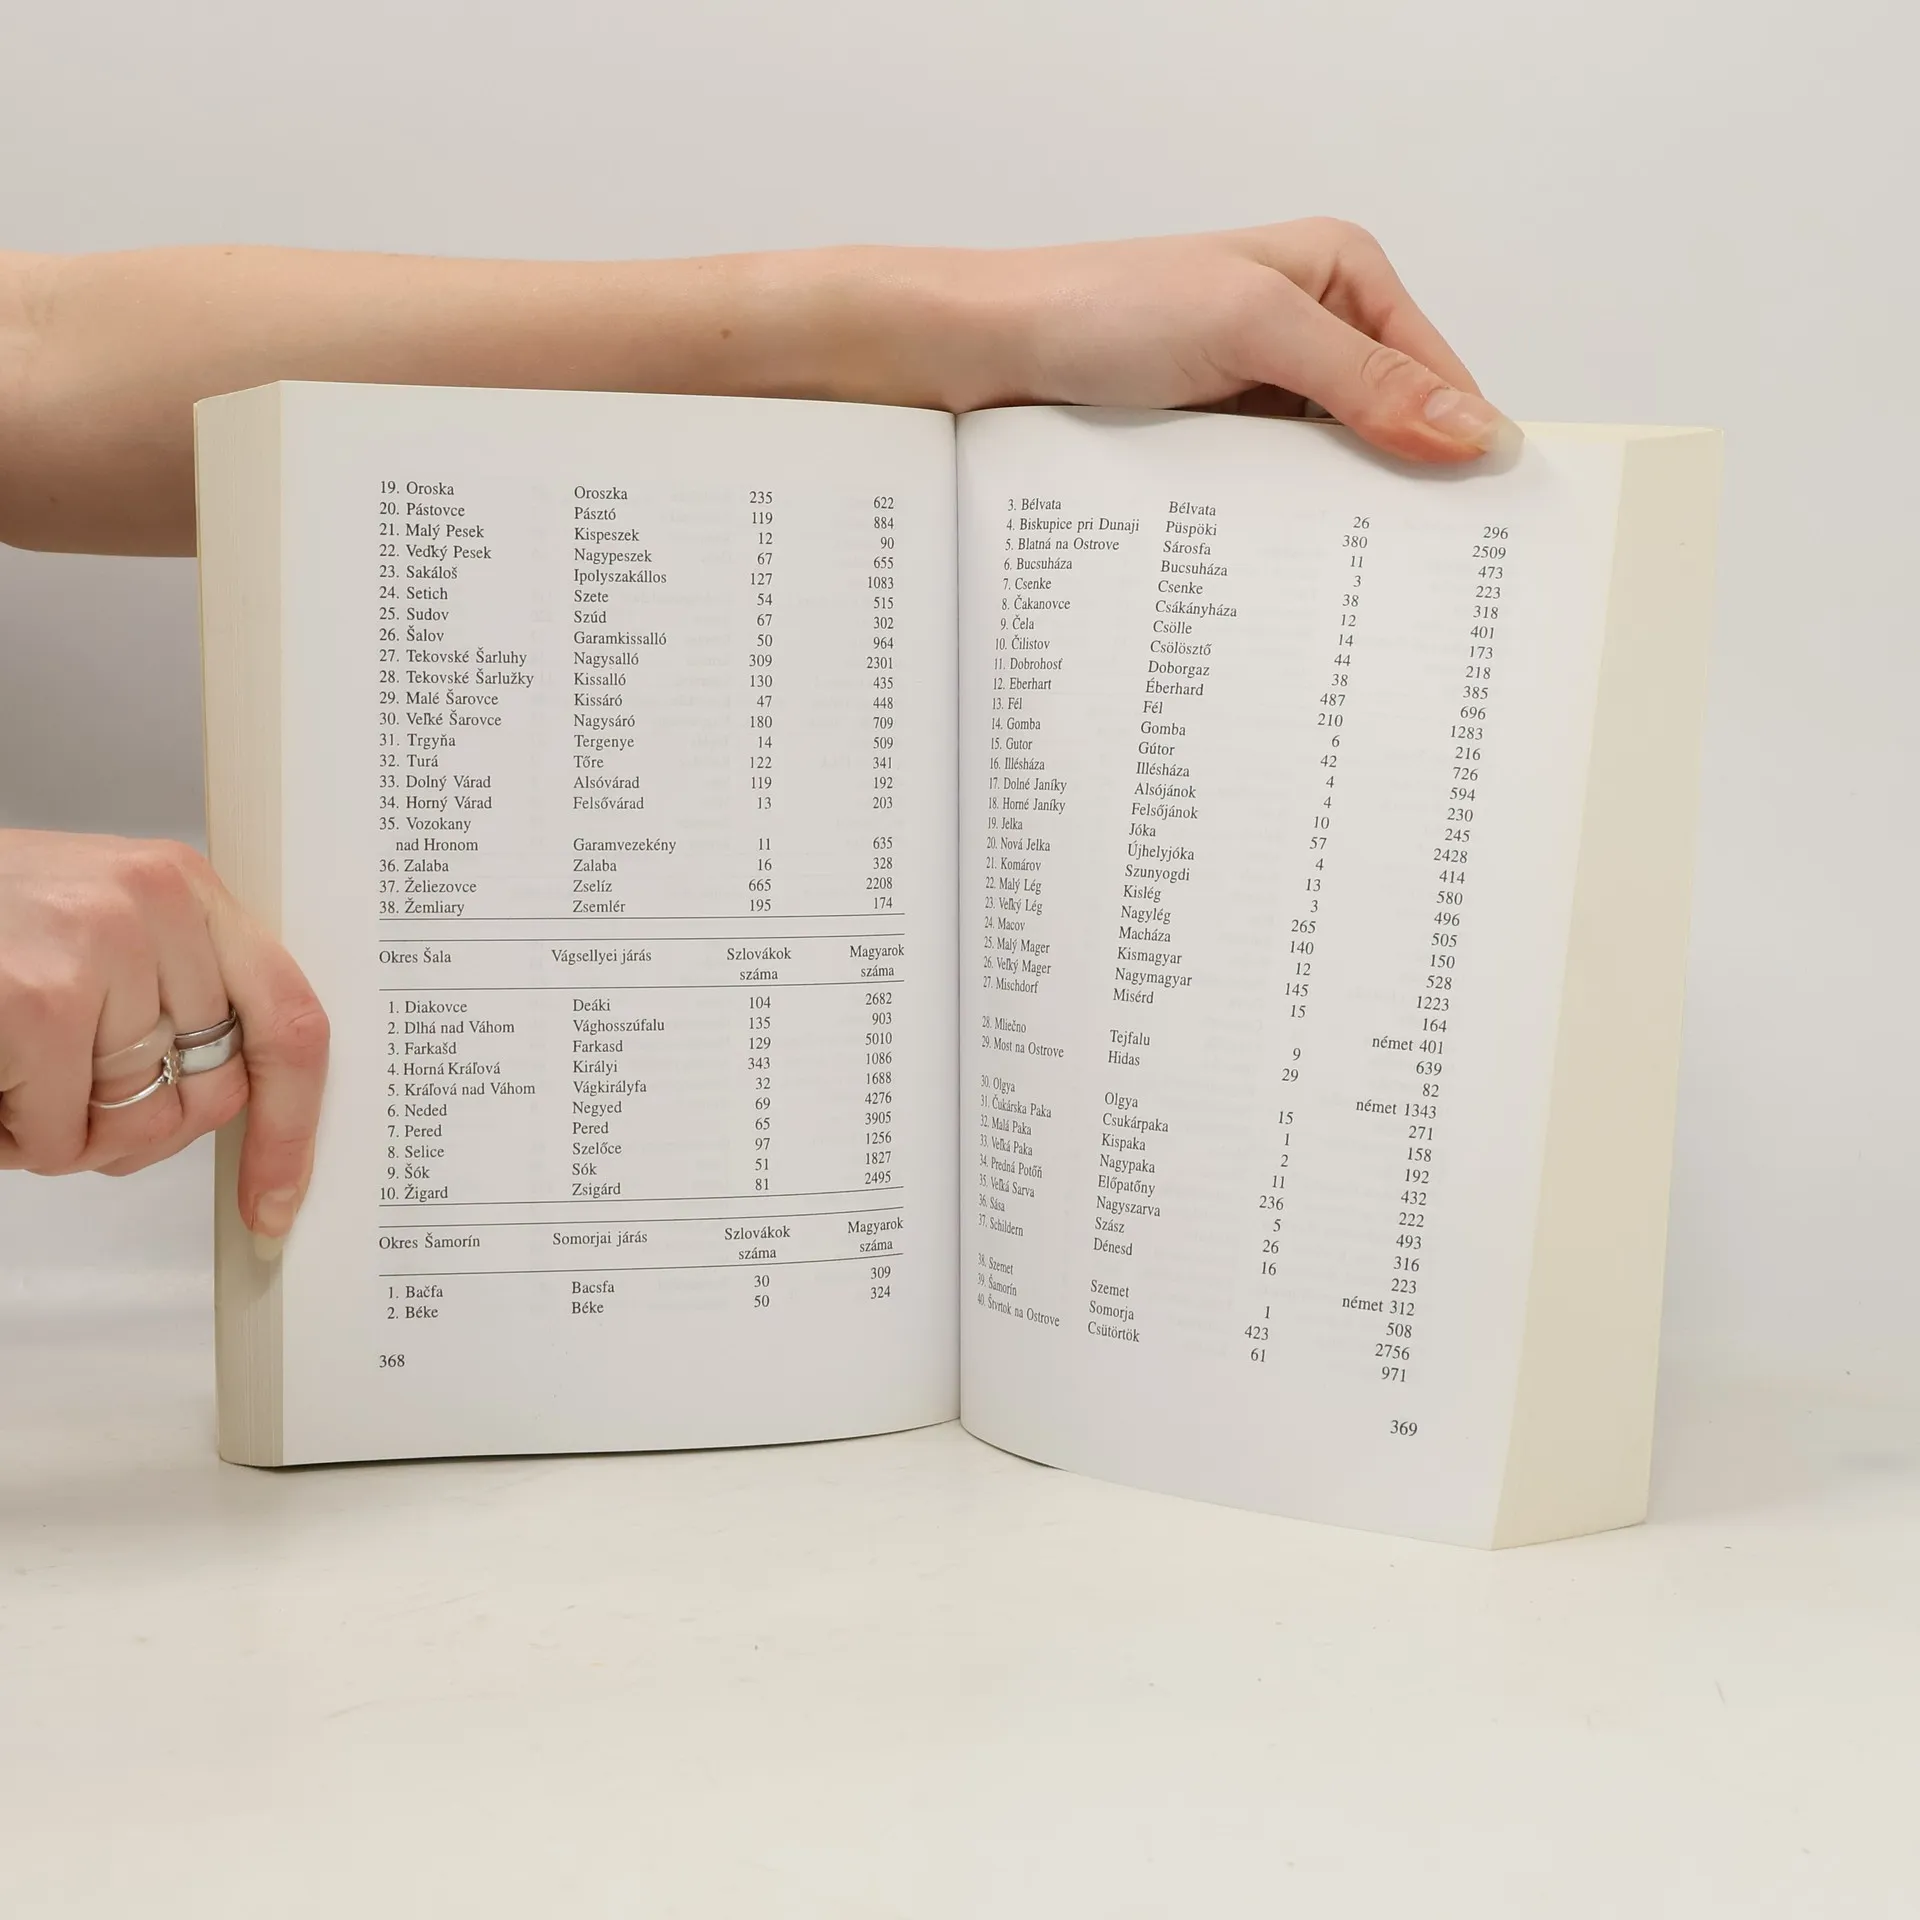 19. Oroska Oroszka 235 622
20. Pástovce Pásztó 119 884
21. Malý Pesek Kispeszek 12 90
22. Veďký Pesek Nagypeszek 67 655
23. Sakáloš Ipolyszakállos 127 1083
24. Setich Szete 54 515
25. Sudov Szúd 67 302
26. Šalov Garamkissalló 50 964
27. Tekovské Šarluhy Nagysalló 309 2301
28. Tekovské Šarlužky Kissalló 130 435
29. Malé Šarovce Kissáró 47 448
30. Veľké Šarovce Nagysáró 180 709
31. Trgyňa Tergenye 14 509
32. Turá Tőre 122 341
33. Dolný Várad Alsóvárad 119 192
34. Horný Várad Felsővárad 13 203
35. Vozokany
nad Hronom Garamvezekény 11 635
36. Zalaba Zalaba 16 328
37. Želiezovce Zselíz 665 2208
38. Žemliary Zsemlér 195 174
Okres Šala Vágsellyei járás Szlovákok Magyarok
száma száma
1. Diakovce Deáki 104 2682
2. Dlhá nad Váhom Vághosszúfalu 135 903
3. Farkašd Farkasd 129 5010
4. Horná Kráľová Királyi 343 1086
5. Kráľová nad Váhom Vágkirályfa 32 1688
6. Neded Negyed 69 4276
7. Pered Pered 65 3905
8. Selice Szelőce 97 1256
9. Šók Sók 51 1827
10. Žigard Zsigárd 81 2495
Okres Šamorín Somorjai járás Szlovákok Magyarok
száma száma
1. Bačfa Bacsfa 30 309
2. Béke Béke 50 324
368
3. Bélvata Bélvata 26 296
4. Biskupice pri Dunaji Püspöki 380 2509
5. Blatná na Ostrove Sárosfa 11 473
6. Bucsuháza Bucsuháza 3 223
7. Csenke Csenke 38 318
8. Čakanovce Csákányháza 12 401
9. Čela Csölle 14 173
10. Čilistov Csölösztő 44 218
11. Dobrohosť Doborgaz 38 385
12. Eberhart Éberhard 487 696
13. Fél Fél 210 1283
14. Gomba Gomba 6 216
15. Gutor Gútor 42 726
16. Illésháza Illésháza 4 594
17. Dolné Janíky Alsójánok 4 230
18. Horné Janíky Felsőjánok 10 245
19. Jelka Jóka 57 2428
20. Nová Jelka Újhelyjóka 4 414
21. Komárov Szunyogdi 13 580
22. Malý Lég Kislég 3 496
23. Veľký Lég Nagylég 265 505
24. Macov Macháza 140 150
25. Malý Mager Kismagyar 12 528
26. Veľký Mager Nagymagyar 145 1223
27. Mischdorf Misérd 15 164
német 401
28. Mliečno Tejfalu 9 639
29. Most na Ostrove Hidas 29 82
német 1343
30. Olgya Olgya 15 271
31. Čukárska Paka Csukárpaka 1 158
32. Malá Paka Kispaka 2 192
33. Veľká Paka Nagypaka 11 432
34. Predná Potôň Előpatőny 236 222
35. Veľká Sarva Nagyszarva 5 493
36. Sása Szász 26 316
37. Schildern Dénesd 16 223
német 312
38. Szemet Szemet 1 508
39. Šamorín Somorja 423 2756
40. Štvrtok na Ostrove Csütörtök 61 971
369